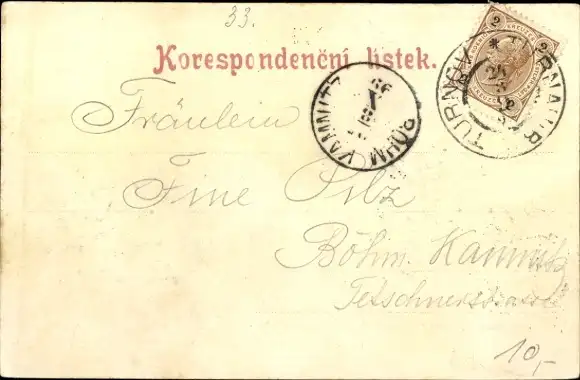 33.
2 KREUZER 2
TURNOV * TURNAU
Korespondenční lístek.
BÖHM. KAMNITZ
99
Fräulein
Fine Pilz
Böhm. Kamnitz
Tetschnerstrasse
10,-